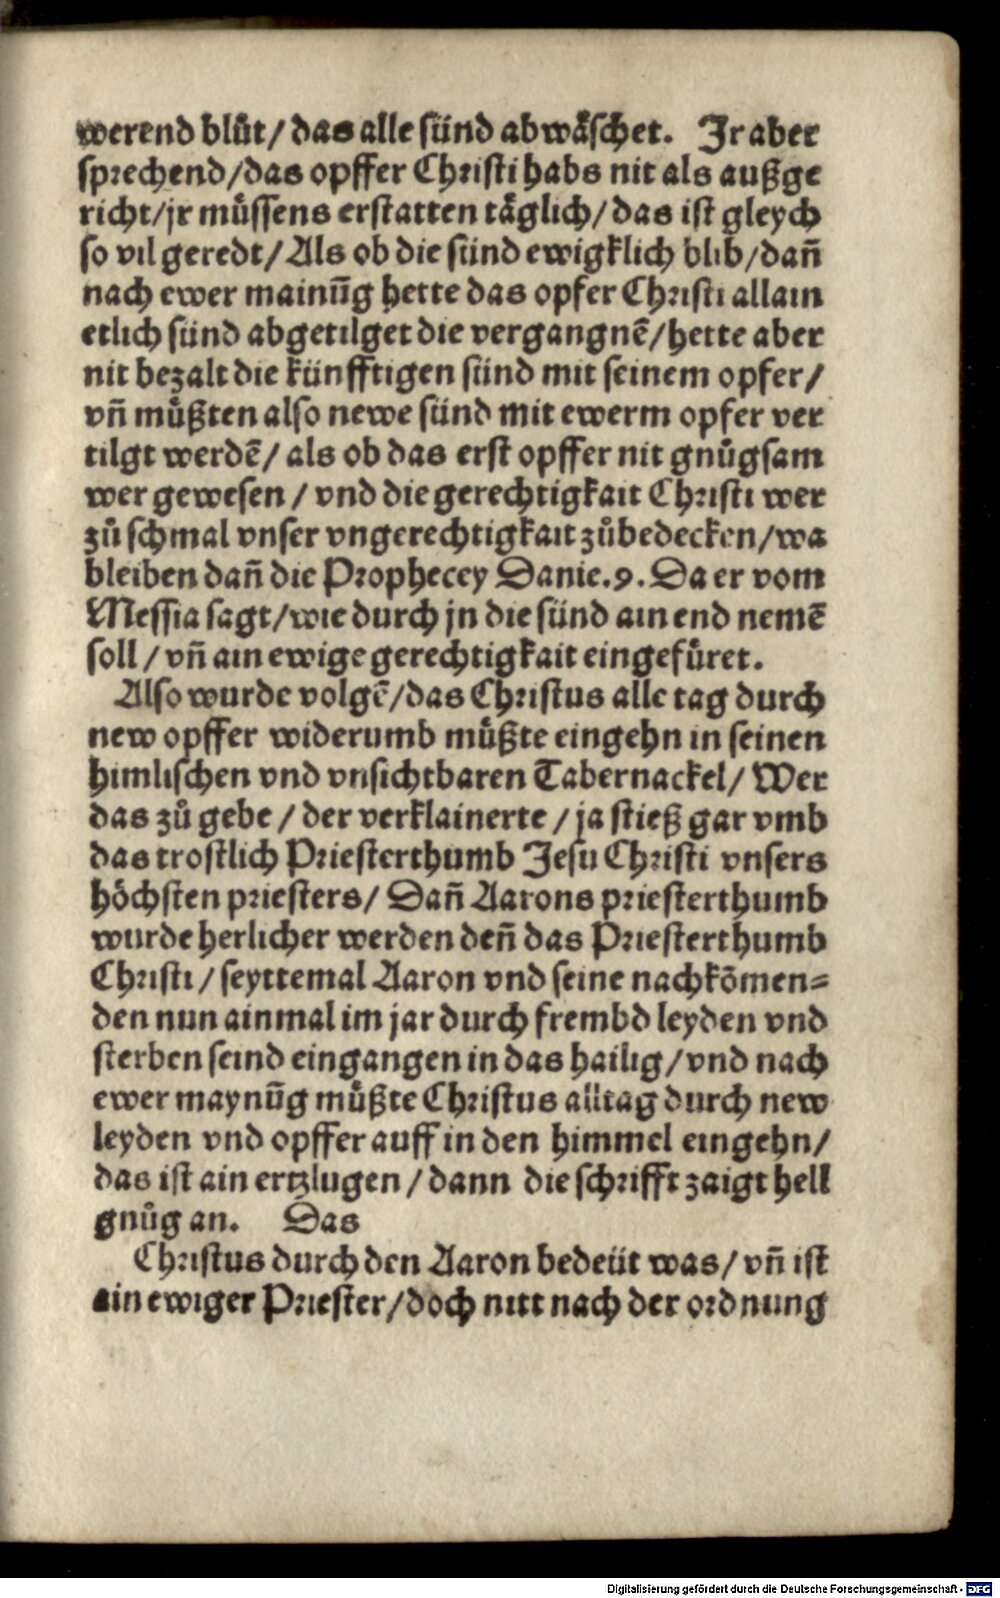 werend blůt / das alle sünd abwäschet. Jr aber
sprechend / das opffer Christi habs nit als außge
richt / jr müssens erstatten täglich / das ist gleych
so vil geredt / Als ob die sünd ewigklich blib / dañ
nach ewer mainũg hette das opfer Christi allain
etlich sünd abgetilget die vergangnẽ / hette aber
nit bezalt die künfftigen sünd mit seinem opfer /
vñ müßten also newe sünd mit ewerm opfer ver
tilgt werdẽ / als ob das erst opffer nit gnůgsam
wer gewesen / vnd die gerechtigkait Christi wer
zů schmal vnser vngerechtigkait zůbedecken / wa
bleiben dañ die Prophecey Danie.9. Da er vom
Messia sagt / wie durch jn die sünd ain end nemẽ
soll / vñ ain ewige gerechtigkait eingefüret.
Also wurde volgẽ / das Christus alle tag durch
new opffer widerumb müßte eingehn in seinen
himlischen vnd vnsichtbaren Tabernackel / Wer
das zů gebe / der verklainerte / ja stieß gar vmb
das trostlich Priesterthumb Jesu Christi vnsers
höchsten priesters / Dañ Aarons priesterthumb
wurde herlicher werden deñ das Priesterthumb
Christi / seyttemal Aaron vnd seine nachkõmen=
den nun ainmal im jar durch frembd leyden vnd
sterben seind eingangen in das hailig / vnd nach
ewer maynũg müßte Christus alltag durch new
leyden vnd opffer auff in den himmel eingehn /
das ist ain ertzlugen / dann die schrifft zaigt hell
gnůg an. Das
Christus durch den Aaron bedeüt was / vñ ist
ain ewiger Priester / doch nitt nach der ordnung
Digitalisierung gefördert durch die Deutsche Forschungsgemeinschaft - DFG